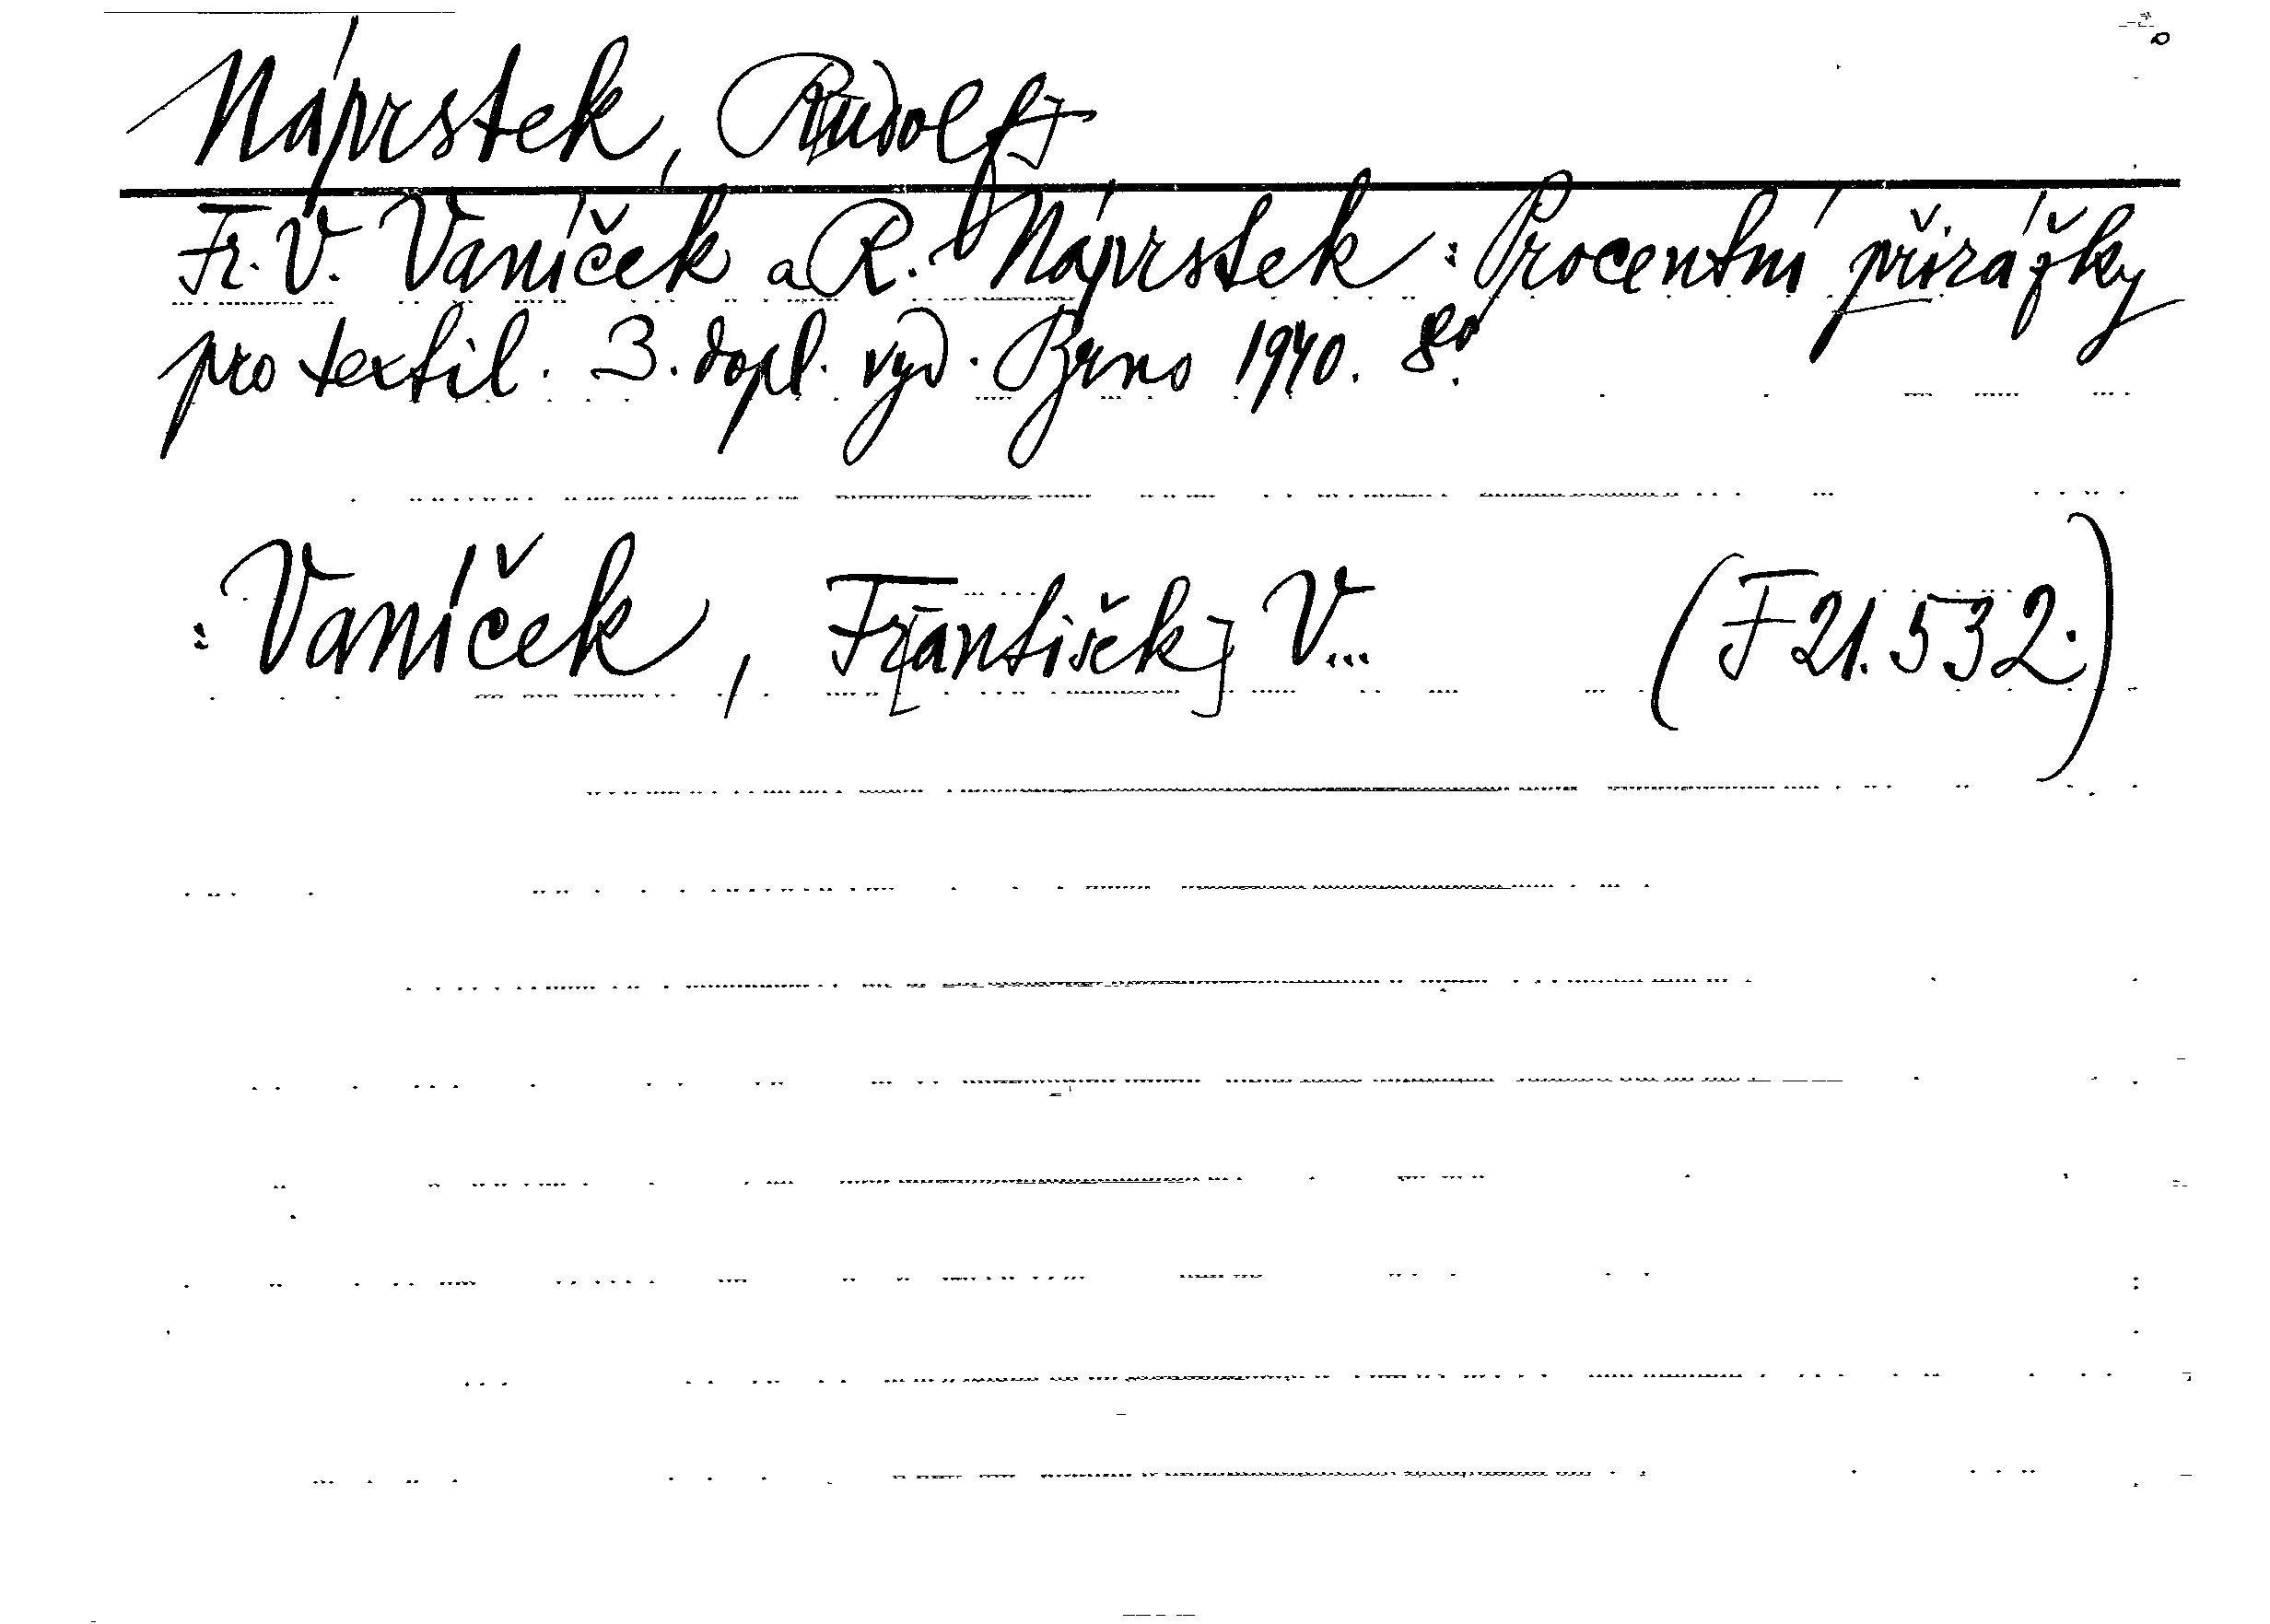 Náprstek, R[udolf]
Fr. V. Vaníček a R. Náprstek: Procentní přirážky
pro textil. 3. dopl. vyd. Brno 1940. 8º.
: Vaníček, Fr[antišek] V... (F 21.532.)